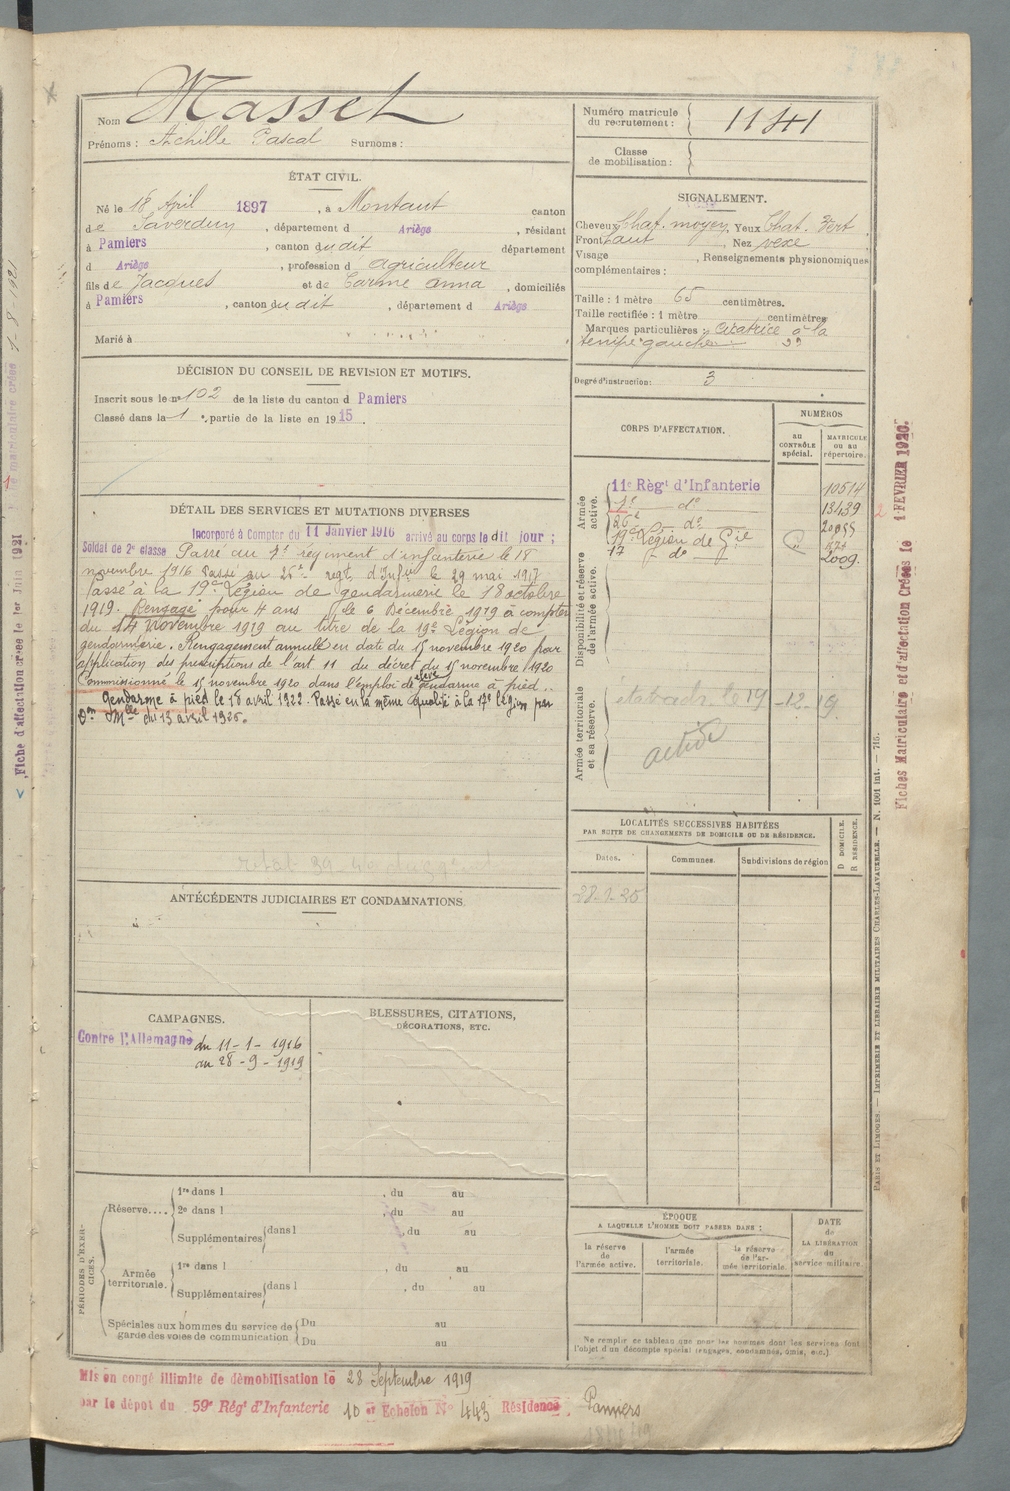 Nom Masset
Prénoms : Achille Pascal Surnoms :
ÉTAT CIVIL.
Né le 18 April 1897, à Montaut canton
de Saverdun, département d Ariège, résidant
à Pamiers, canton dudit département
d Ariège, profession d agriculteur
fils de Jacques et de Carme anna, domiciliés
à Pamiers, canton dudit, département d Ariège
Marié à
DÉCISION DU CONSEIL DE REVISION ET MOTIFS.
Inscrit sous le nº 102 de la liste du canton d Pamiers
Classé dans la 1e partie de la liste en 1915.
DÉTAIL DES SERVICES ET MUTATIONS DIVERSES
Incorporé à Compter du 11 Janvier 1916 arrivé au corps le dit jour ;
Soldat de 2e classe Passé au 7e régiment d'infanterie le 18
novembre 1916 Passé au 26e regt d'Infie le 29 mai 1917
Passé à la 19e Légion de gendarmerie le 18 octobre
1919. Rengagé pour 4 ans le 6 Décembre 1919 à compter
du 14 Novembre 1919 au titre de la 19e Légion de
gendarmerie. Rengagement annulé en date du 15 novembre 1920 par
application des prescriptions de l'art 11 du décret du 15 novembre 1920
Commissionné le 15 novembre 1920 dans l'emploi de élève gendarme à pied..
Gendarme à pied le 18 avril 1922. Passé en la même qualité à la 17e Légion par
Don Mlle du 13 avril 1925.
ANTÉCÉDENTS JUDICIAIRES ET CONDAMNATIONS
CAMPAGNES.
Contre l'Allemagne du 11-1-1916
au 28-9-1919
BLESSURES, CITATIONS,
DÉCORATIONS, ETC.
PÉRIODES D'EXERCICES.
Réserve.... 1re dans l , du au
2e dans l , du au
Supplémentaires dans l , du au
Armée territoriale. 1re dans l , du au
Supplémentaires dans l , du au
Spéciales aux hommes du service de Du au
garde des voies de communication Du au
Numéro matricule
du recrutement : 1141
Classe
de mobilisation :
SIGNALEMENT.
Cheveux Chat. moyen, Yeux Chat. Vert
Front haut, Nez vexe
Visage , Renseignements physionomiques
complémentaires :
Taille : 1 mètre 65 centimètres.
Taille rectifiée : 1 mètre centimètres
Marques particulières : cicatrice à la
tempe gauche
Degré d'instruction : 3
CORPS D'AFFECTATION.
NUMÉROS
au
CONTRÔLE
spécial.
MATRICULE
ou au
répertoire.
Armée active.
11e Règt d'Infanterie 10514
7e do 13439
26e do
19e Légion de Gie
17 do 2009.
Disponibilité et réserve de l'armée active.
Armée territoriale et sa réserve.
-12-19.
active
LOCALITÉS SUCCESSIVES HABITÉES
PAR SUITE DE CHANGEMENTS DE DOMICILE OU DE RÉSIDENCE.
Dates. Communes. Subdivisions de région
D DOMICILE.
R RÉSIDENCE.
ÉPOQUE
A LAQUELLE L'HOMME DOIT PASSER DANS :
la réserve
de
l'armée active.
l'armée
territoriale.
la réserve
de l'ar-
mée territoriale.
DATE
de
LA LIBÉRATION
du
service militaire.
Ne remplir ce tableau que pour les hommes dont les services font
l'objet d'un décompte spécial (engagés, condamnés, omis, etc.)
PARIS ET LIMOGES. — IMPRIMERIE ET LIBRAIRIE MILITAIRES CHARLES-LAVAUZELLE. — N. 1001 int. — 715.
Fiches Matriculaire et d'affectation Créées le 1 FEVRIER 1920.
Fiche d'affectation créée le 1er Juin 1921
Mis en congé illimité de démobilisation le 28 Septembre 1919
par le dépôt du 59e Règt d'Infanterie 10 e Echelon No 443 Résidence Pamiers